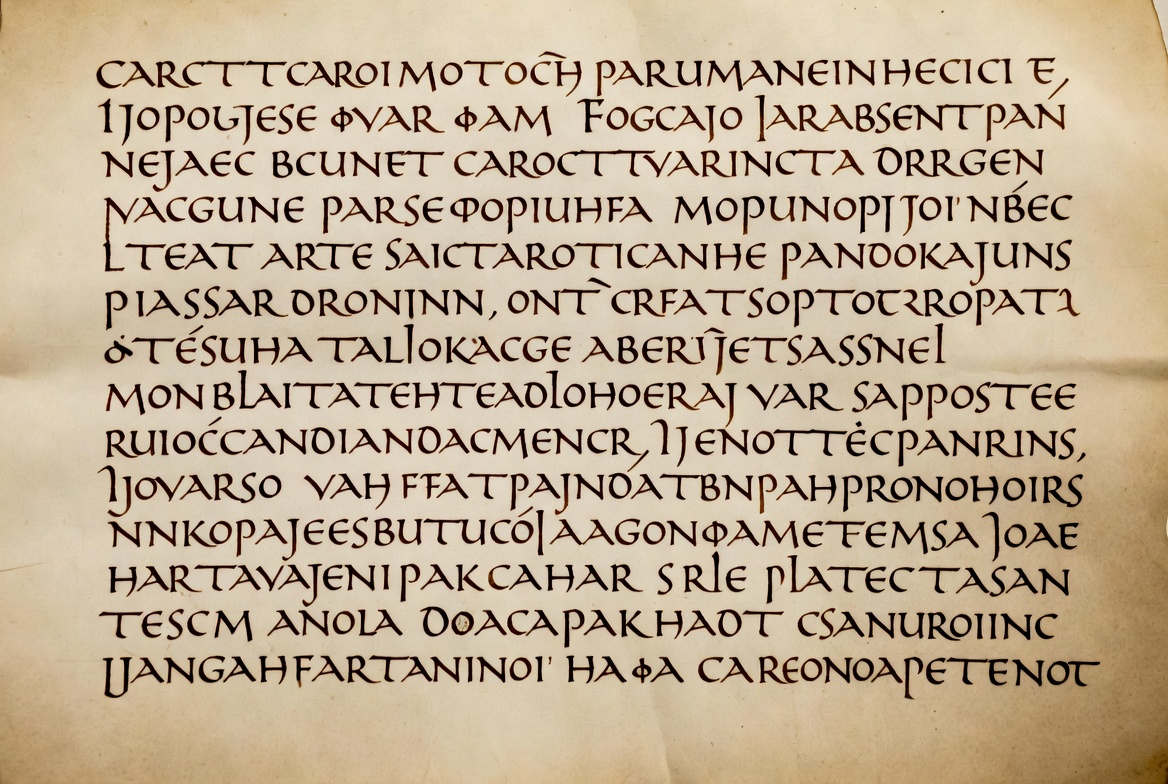 CARCTTCAROIMOTOC̃H PARUMANEINHECICI E,
IJOPOLJESE ΦVAR ΦAM FOGCAJO JARABSENTPAŃ
NEJAEC BCUNET CAROCTTVARINCTA ORRGEN
NACGUNE PARSEΦOPIUHFA MOPUNOPJ JOI'NB́EC
LTEAT ARTE SAICTAROTICANHE PANDOKAJUNS
PIASSARORONINN, ONT CRFATSOPTO
TÉSUHATALlOKACGE ABERIJETSASSNEl
MONBLAITATEHTEADlOHOERAJ VAR SAPPOSTEE
RUIOĆCANDIANDACMENCR, IJENOTTĖCPANRINS,
IJOVARSO VAH FFATPAJNÓATBNPAHPRONOHOIRS
NNKOPAJEESBUTUCÓ|AAGONΦAMETEMSA JOAE
HARTAVAJENIPAKCAHAR SRlE PlATECTASAN
TESCM ANOLA DOACAPAKHADT CSANUROIINC
IJANGAHFARTANINOI' HAΦA CAREONOAPETENOT